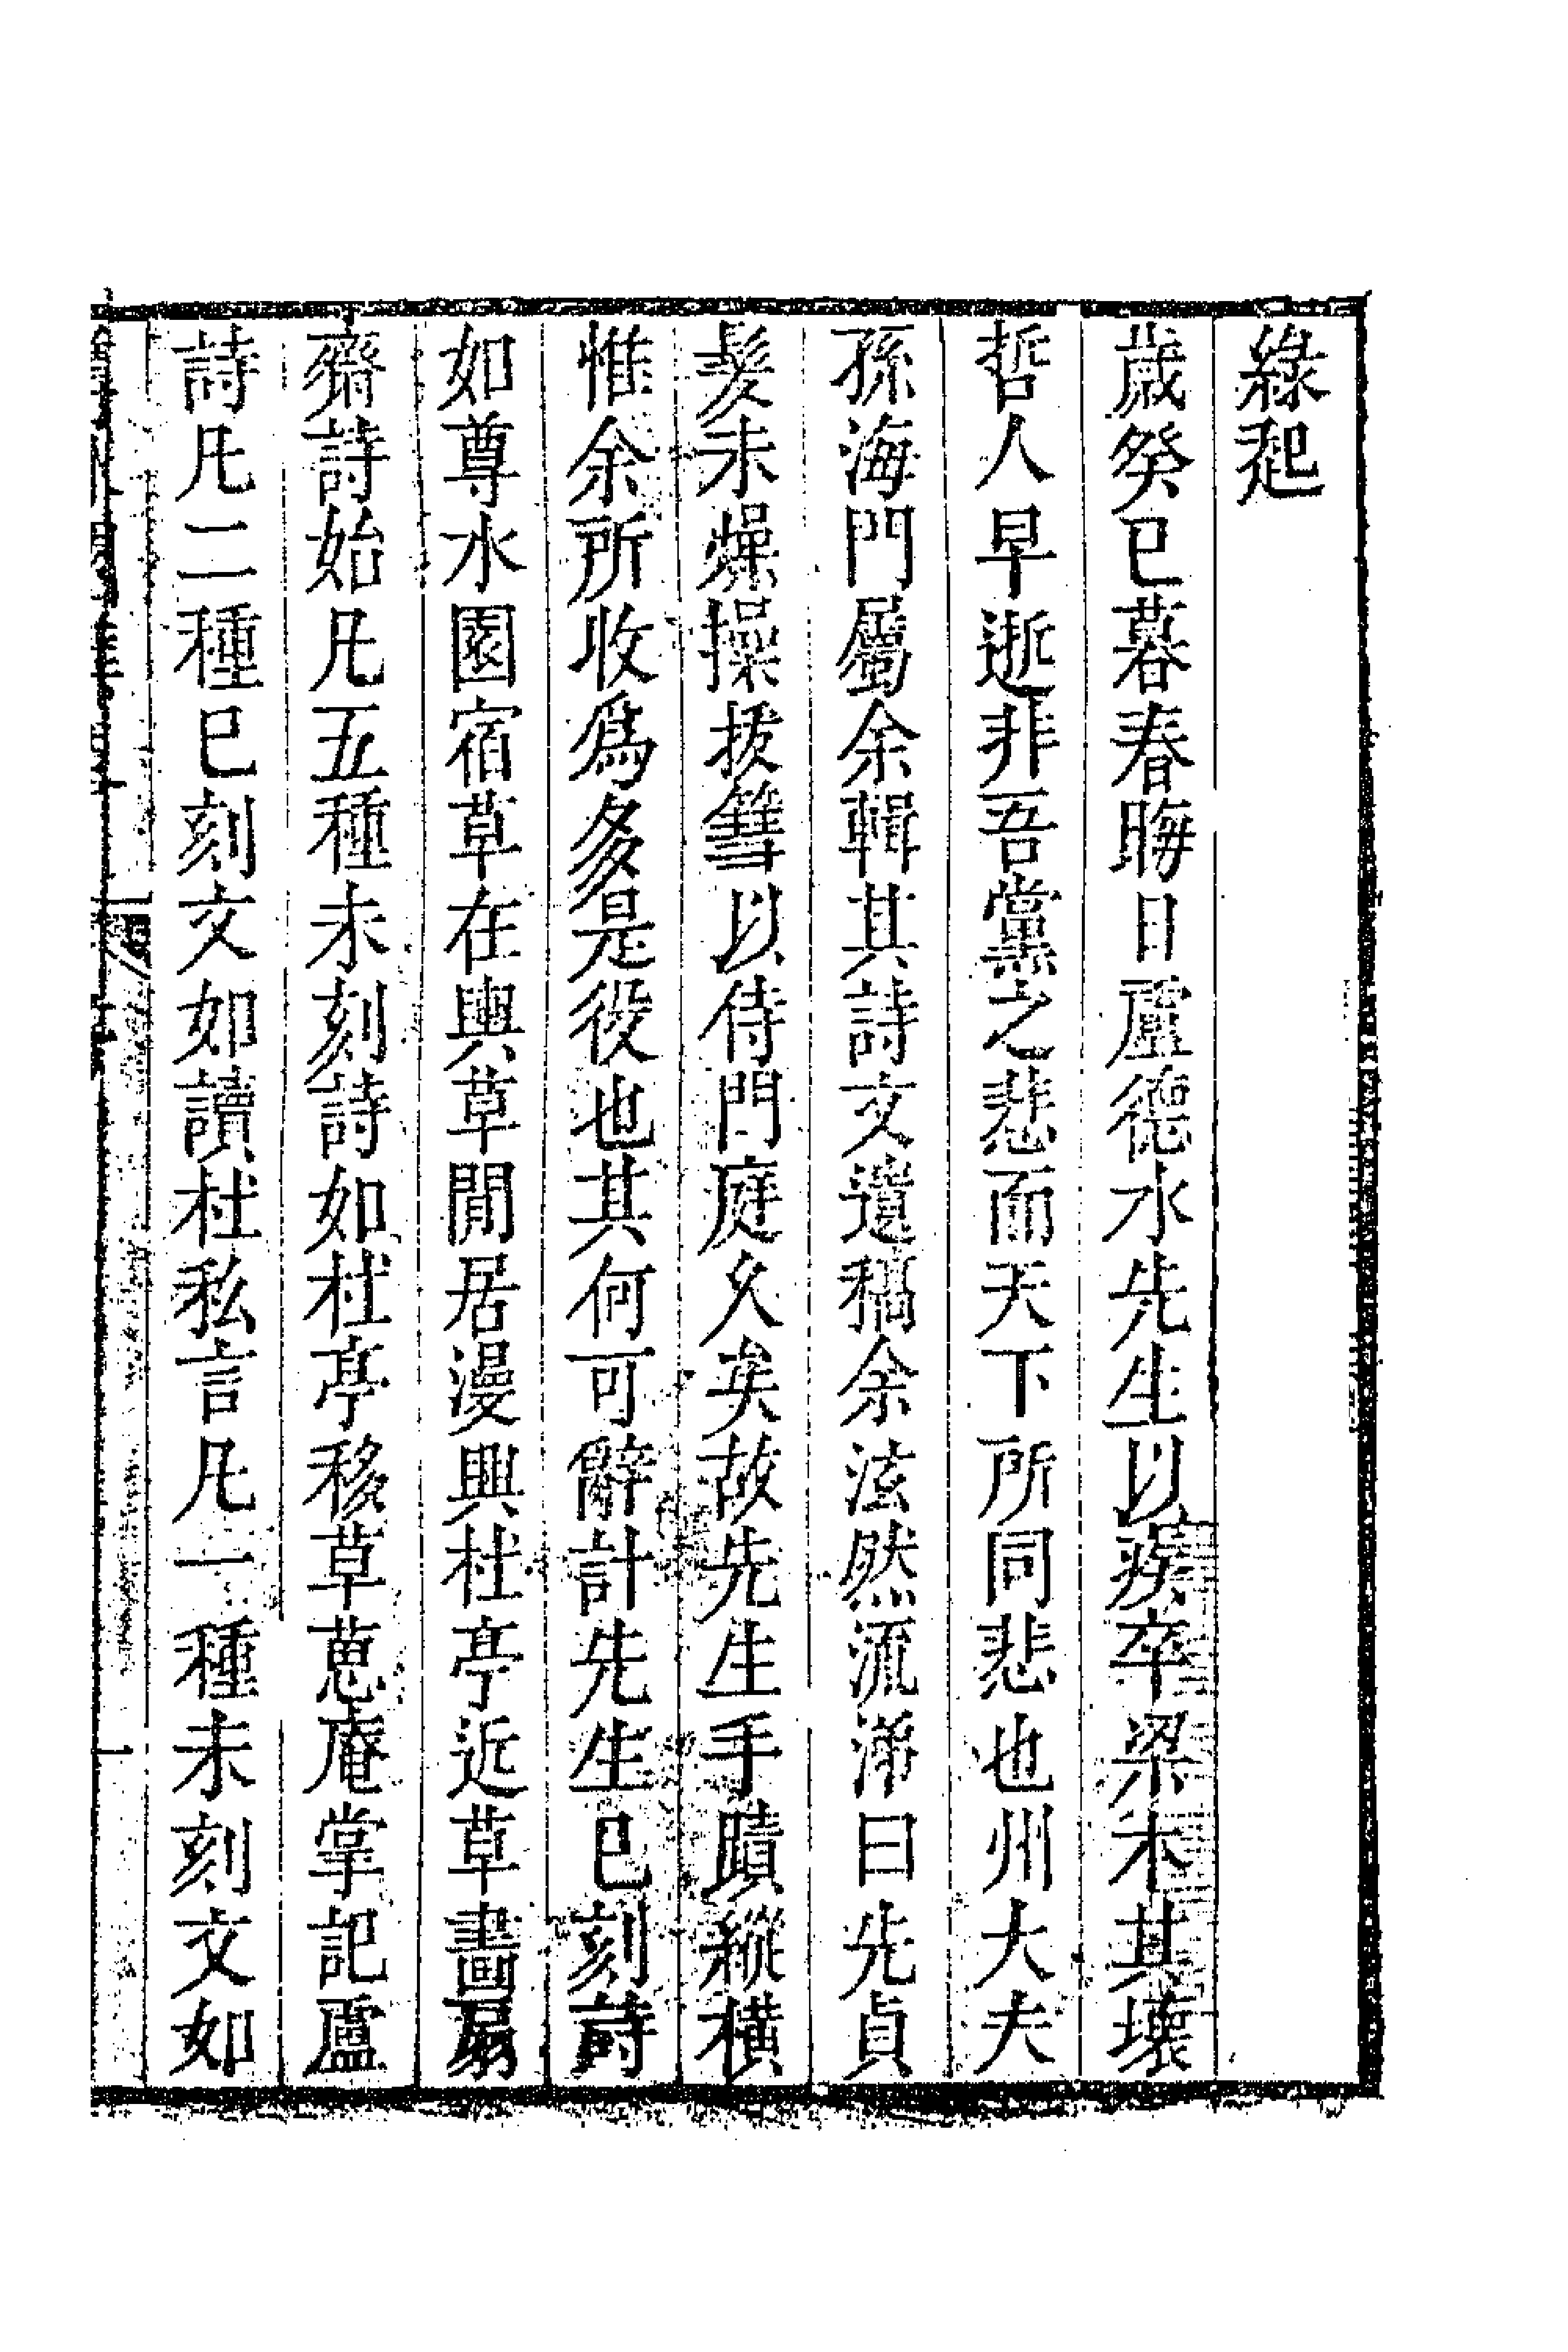 緣起
歲癸巳暮春晦日盧德水先生以疾卒梁木其壞
哲人早逝非吾黨之悲而天下所同悲也州大夫
孫海門屬余輯其詩文遺稿余泫然流涕曰先貞
髮未燥操拔篲以侍門庭久矣故先生手蹟縱橫
惟余所收爲多是役也其何可辭計先生已刻詩
如尊水園宿草在輿草閒居漫興杜亭近草畫扇
齋詩始凡五種未刻詩如杜亭移草蒽庵掌記盧
詩凡二種已刻文如讀杜私言凡一種未刻文如
一